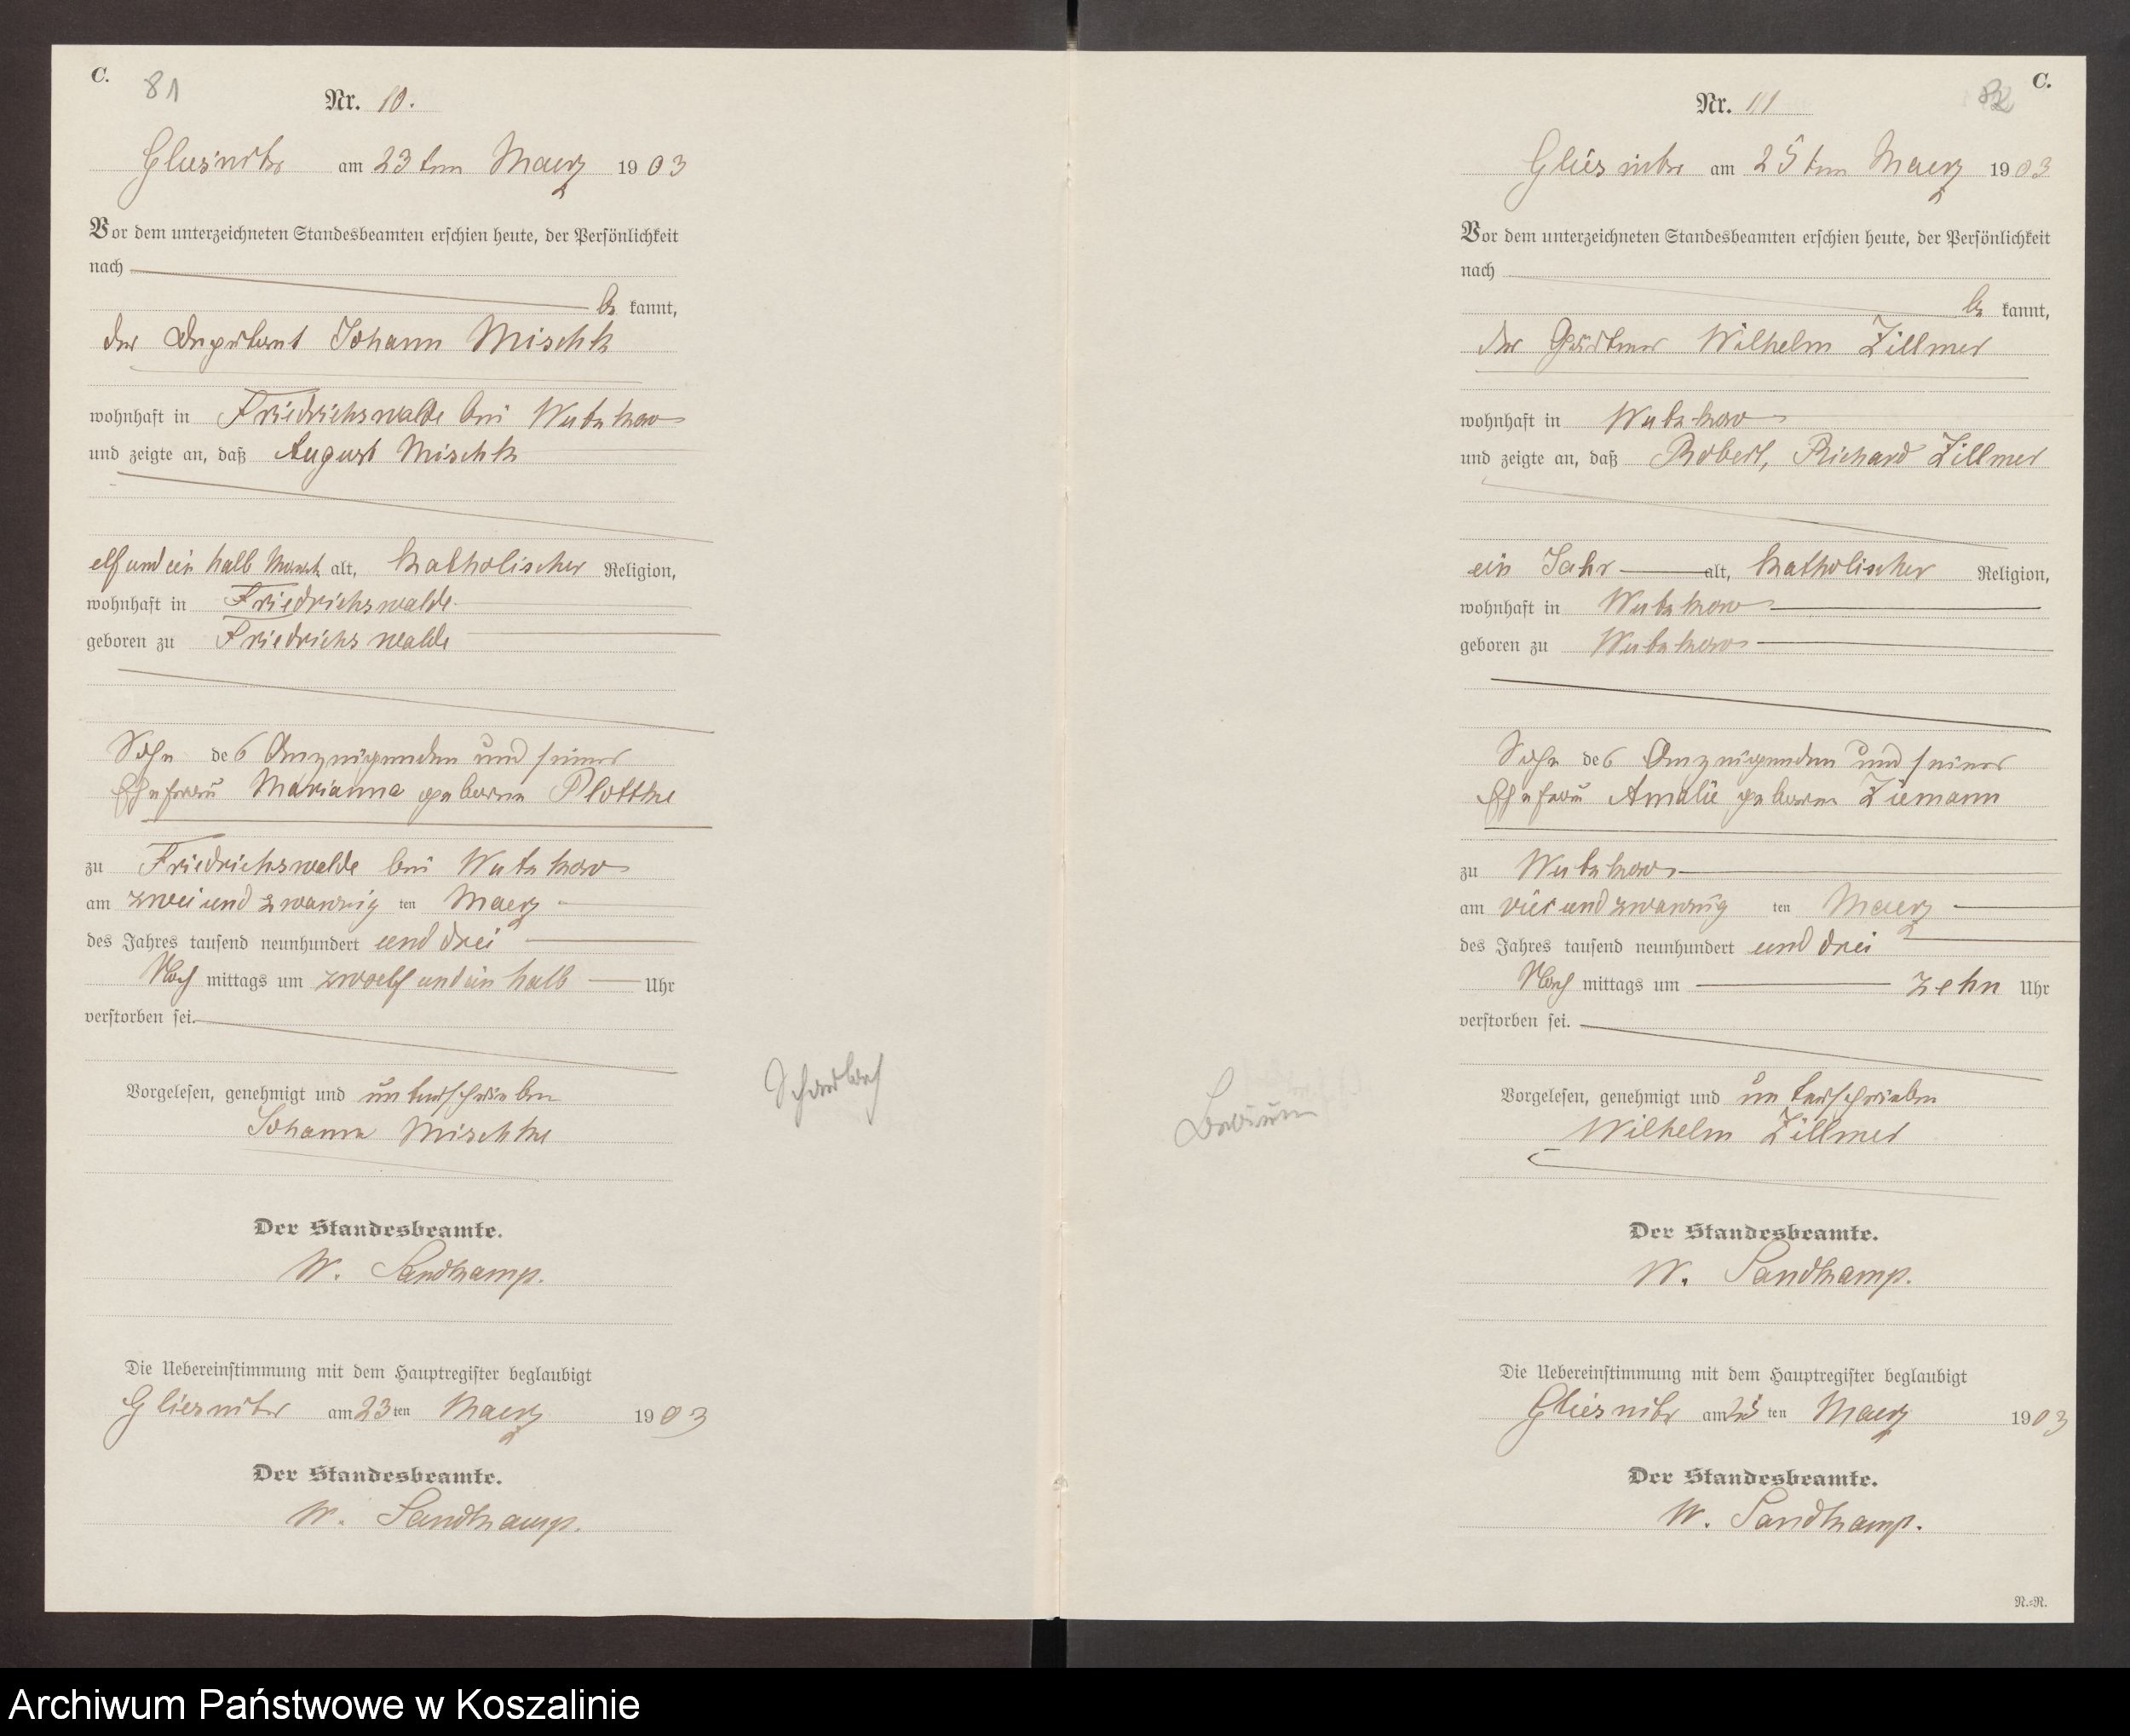 C.
81
Nr. 10.
Gliesnitz am 23ten Maerz 1903
Vor dem unterzeichneten Standesbeamten erschien heute, der Persönlichkeit
nach
be kannt,
der Deputant Johann Mischke
wohnhaft in Friedrichswalde bei Wutzkow
und zeigte an, daß August Mischke
elf und ein halb Monat alt, katholischer Religion,
wohnhaft in Friedrichswalde
geboren zu Friedrichswalde
Sohn des Anzeigenden und seiner
Ehefrau Marianna geborene Plottke
zu Friedrichswalde bei Wutzkow
am zwei und zwanzig ten Maerz
des Jahres tausend neunhundert und drei
Nach mittags um zwoelf und ein halb Uhr
verstorben sei.
Vorgelesen, genehmigt und unterschrieben
Johann Mischke
Der Standesbeamte.
W. Sandkamp.
Die Uebereinstimmung mit dem Hauptregister beglaubigt
Gliesnitz am 23 ten Maerz 1903
Der Standesbeamte.
W. Sandkamp.
C.
82
Nr. 11
Gliesnitz am 25ten Maerz 1903
Vor dem unterzeichneten Standesbeamten erschien heute, der Persönlichkeit
nach
be kannt,
der Gärtner Wilhelm Zillmer
wohnhaft in Wutzkow
und zeigte an, daß Robert, Richard Zillmer
ein Jahr alt, katholischer Religion,
wohnhaft in Wutzkow
geboren zu Wutzkow
Sohn des Anzeigenden und seiner
Ehefrau Amalie geborene Ziemann
zu Wutzkow
am vier und zwanzig ten Maerz
des Jahres tausend neunhundert und drei
Nach mittags um zehn Uhr
verstorben sei.
Vorgelesen, genehmigt und unterschrieben
Wilhelm Zillmer
Der Standesbeamte.
W. Sandkamp.
Die Uebereinstimmung mit dem Hauptregister beglaubigt
Gliesnitz am 25 ten Maerz 1903
Der Standesbeamte.
W. Sandkamp.
N.=N.
Archiwum Państwowe w Koszalinie